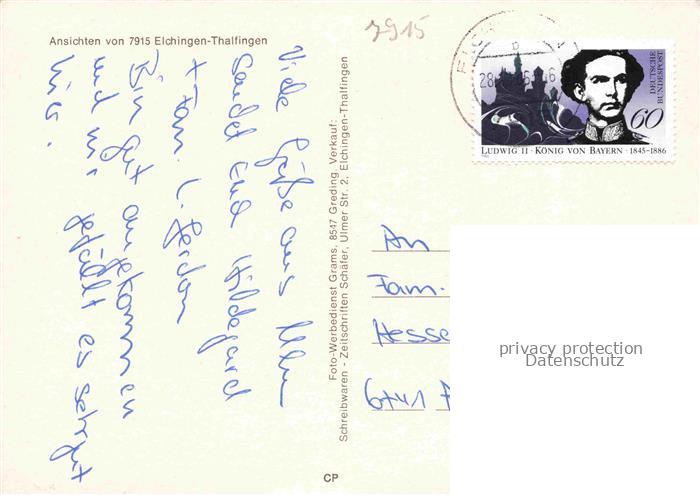 Ansichten von 7915 Elchingen-Thalfingen
7915
DEUTSCHE
BUNDESPOST
60
LUDWIG II · KÖNIG VON BAYERN · 1845-1886
Viele Grüße aus Ulm
sendet Eud Hildegard
+ Fam.
Bin gut angekommen
und mir gefällt es sehr gut
hier.
Foto-Werbedienst Grams, 8547 Greding, Verkauf:
Schreibwaren - Zeitschriften Schäfer, Ulmer Str. 2, Elchingen-Thalfingen
An
Fam.
Hesse
6441
privacy protection
Datenschutz
CP